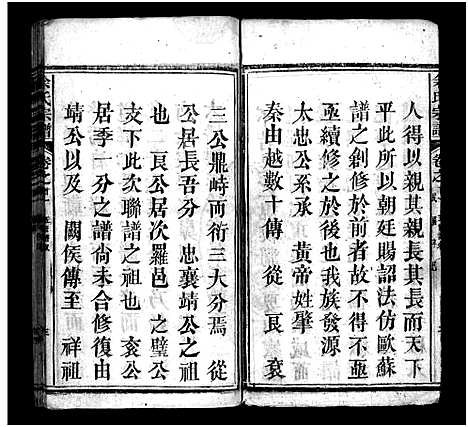 人得以親其長其長而天下
平此所以朝廷賜詔法仿歐蘇
譜之創修於前者故不得不
亟續修之於後也我族發源
太忠公系承 黃帝姓肇
秦由越數十 傳 從 衰
三公鼎峙而衍三大分焉 從
公居長吾分 忠襄靖公之祖
也 公居次羅邑 之璧公
支下此次聯譜之祖也 袞公
居季一分之譜尚未合修復由
靖公以及 關侯傳至 祥祖
余氏宗譜 卷之